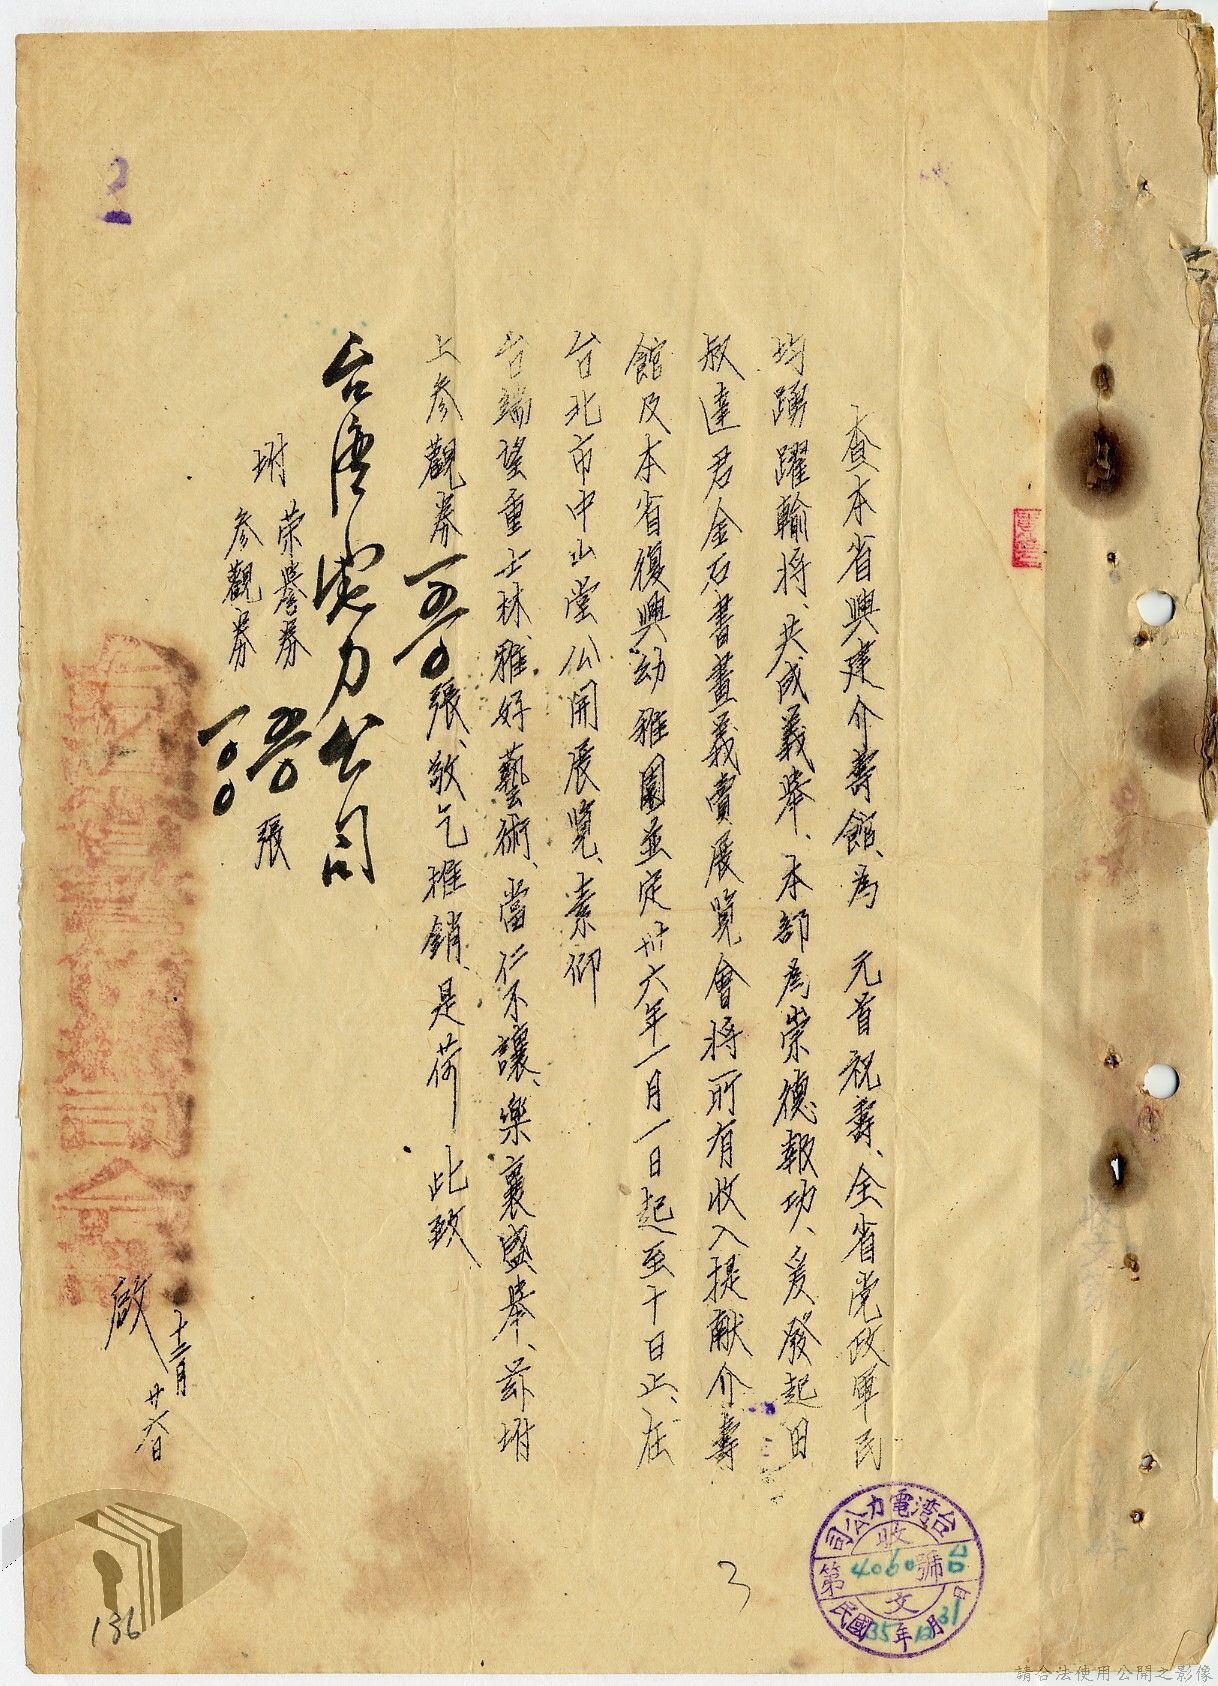 查本省興建介壽館、為 元首祝壽、全省党政軍民
均踴躍輸將、共成義舉、本部為崇德報功、爰發起田
叔達君金石書畫義賣展覽會將所有收入提献介壽
館及本省復興幼稚園並定卅六年一月一日起至十日止、在
台北市中山堂公開展覽、素仰
台端望重士林、雅好藝術、當仁不讓、樂襄盛舉、茲坿
上參觀券 張、敬乞推銷、是荷 此致
台湾電力公司
坿 荣譽券
參觀券
張
啟 十二月廿八日
台湾電力公司
收
第4060號
文
民國35年12月31日
3
2
136
請合法使用公開之影像